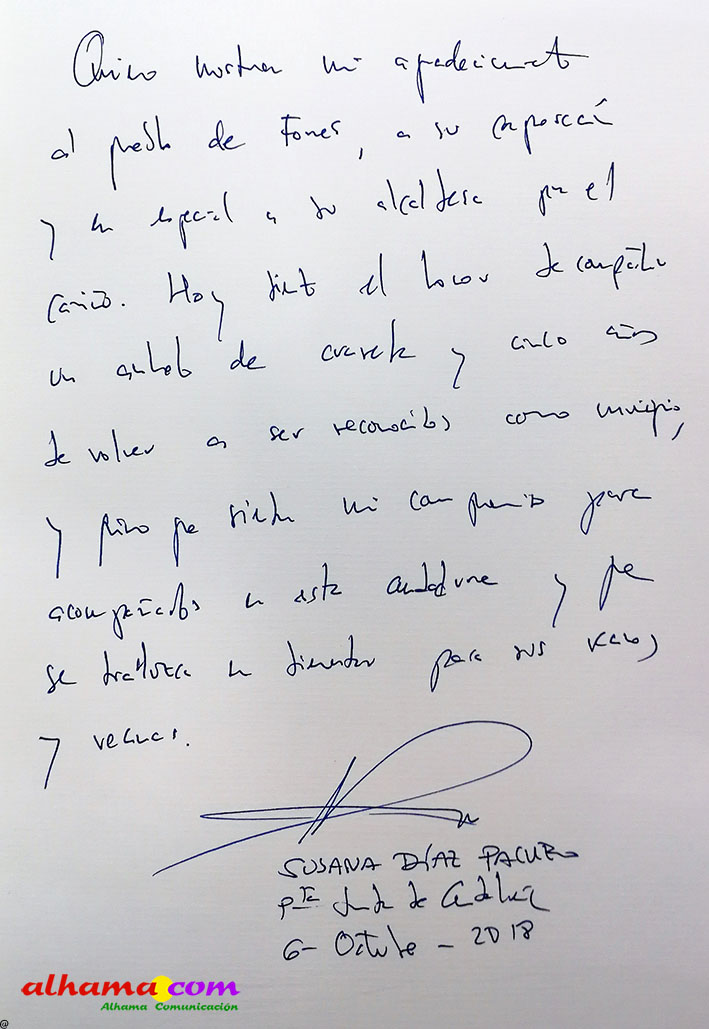 Quiero mostrar mi agradecimiento
al pueblo de Fornes, a su corporación
y en especial a su alcaldesa por el
cariño. Hoy siento el honor de compartir
un anhelo de cuarenta y cinco años
de volver a ser reconocidos como municipio,
y quiero que sientan mi compromiso para
acompañarlos en esta andadura y que
se traduzca en bienestar para sus vecinos
y vecinas.
SUSANA DÍAZ PACHECO
Pta Junta de Andalucía
6- Octubre - 2018
alhama.com
Alhama Comunicación
@